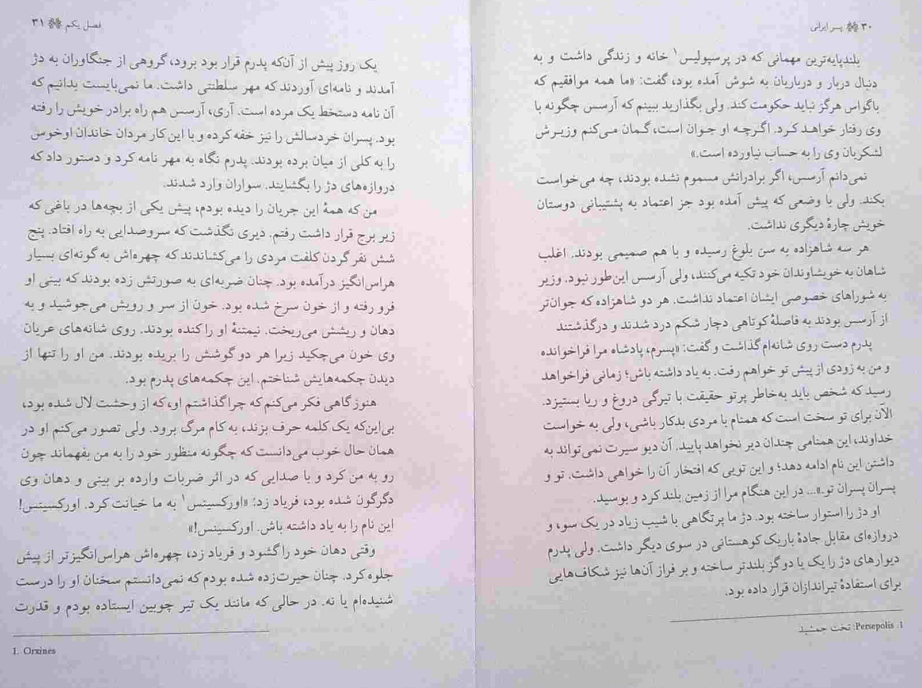 ۳۰ پسر ایرانی
بلندپایه‌ترین مهمانی که در پرسپولیس۱ خانه و زندگی داشت و به
دنبال دربار و درباریان به شوش آمده بود، گفت: «ما همه موافقیم که
باگواس هرگز نباید حکومت کند. ولی بگذارید ببینم که آرسس چگونه با
وی رفتار خواهد کرد. اگرچه او جوان است، گمان می‌کنم وزیرش
لشکریان وی را به حساب نیاورده است.»
نمی‌دانم آرسس، اگر برادرانش مسموم نشده بودند، چه می‌خواست
بکند. ولی با وضعی که پیش آمده بود جز اعتماد به پشتیبانی دوستان
خویش چارهٔ دیگری نداشت.
هر سه شاهزاده به سن بلوغ رسیده و با هم صمیمی بودند. اغلب
شاهان به خویشاوندان خود تکیه می‌کنند، ولی آرسس این‌طور نبود. وزیر
به شوراهای خصوصی ایشان اعتماد نداشت. هر دو شاهزاده که جوان‌تر
از آرسس بودند به فاصلهٔ کوتاهی دچار شکم درد شدند و درگذشتند
پدرم دست روی شانه‌ام گذاشت و گفت: «پسرم، پادشاه مرا فراخوانده
و من به زودی از پیش تو خواهم رفت. به یاد داشته باش؛ زمانی فراخواهد
رسید که شخص باید به‌خاطر پرتو حقیقت با تیرگی دروغ و ریا بستیزد.
الآن برای تو سخت است که همنام با مردی بدکار باشی، ولی به خواست
خداوند، این همنامی چندان دیر نخواهد پایید. آن دیو سیرت نمی‌تواند به
داشتن این نام ادامه دهد؛ و این تویی که افتخار آن را خواهی داشت. تو و
پسران پسران تو.»... در این هنگام مرا از زمین بلند کرد و بوسید.
او دژ را استوار ساخته بود. دژ ما پرتگاهی با شیب زیاد در یک سو، و
دروازه‌ای مقابل جادهٔ باریک کوهستانی در سوی دیگر داشت. ولی پدرم
دیوارهای دژ را یک یا دو گز بلندتر ساخته و بر فراز آن‌ها نیز شکاف‌هایی
برای استفادهٔ تیراندازان قرار داده بود.
1. Persepolis: تخت جمشید
فصل یکم ۳۱
یک روز پیش از آن‌که پدرم قرار بود برود، گروهی از جنگاوران به دژ
آمدند و نامه‌ای آوردند که مهر سلطنتی داشت. ما نمی‌بایست بدانیم که
آن نامه دستخط یک مرده است. آری، آرسس هم راه برادر خویش را رفته
بود. پسران خردسالش را نیز خفه کرده و با این کار مردان خاندان اوخوس
را به کلی از میان برده بودند. پدرم نگاه به مهر نامه کرد و دستور داد که
دروازه‌های دژ را بگشایند. سواران وارد شدند.
من که همهٔ این جریان را دیده بودم، پیش یکی از بچه‌ها در باغی که
زیر برج قرار داشت رفتم. دیری نگذشت که سروصدایی به راه افتاد. پنج
شش نفر گردن کلفت مردی را می‌کشاندند که چهره‌اش به گونه‌ای بسیار
هراس‌انگیز درآمده بود. چنان ضربه‌ای به صورتش زده بودند که بینی او
فرو رفته و از خون سرخ شده بود. خون از سر و رویش می‌جوشید و به
دهان و ریشش می‌ریخت. نیمتنهٔ او را کنده بودند. روی شانه‌های عریان
وی خون می‌چکید زیرا هر دو گوشش را بریده بودند. من او را تنها از
دیدن چکمه‌هایش شناختم. این چکمه‌های پدرم بود.
هنوز گاهی فکر می‌کنم که چرا گذاشتم او، که از وحشت لال شده بود،
بی‌این‌که یک کلمه حرف بزند، به کام مرگ برود. ولی تصور می‌کنم او در
همان حال خوب می‌دانست که چگونه منظور خود را به من بفهماند چون
رو به من کرد و با صدایی که در اثر ضربات وارده بر بینی و دهان وی
دگرگون شده بود، فریاد زد: «اورکسینس۱ به ما خیانت کرد. اورکسینس!
این نام را به یاد داشته باش. اورکسینس!»
وقتی دهان خود را گشود و فریاد زد، چهره‌اش هراس‌انگیزتر از پیش
جلوه کرد. چنان حیرت‌زده شده بودم که نمی‌دانستم سخنان او را درست
شنیده‌ام یا نه. در حالی که مانند یک تیر چوبین ایستاده بودم و قدرت
1. Orxines